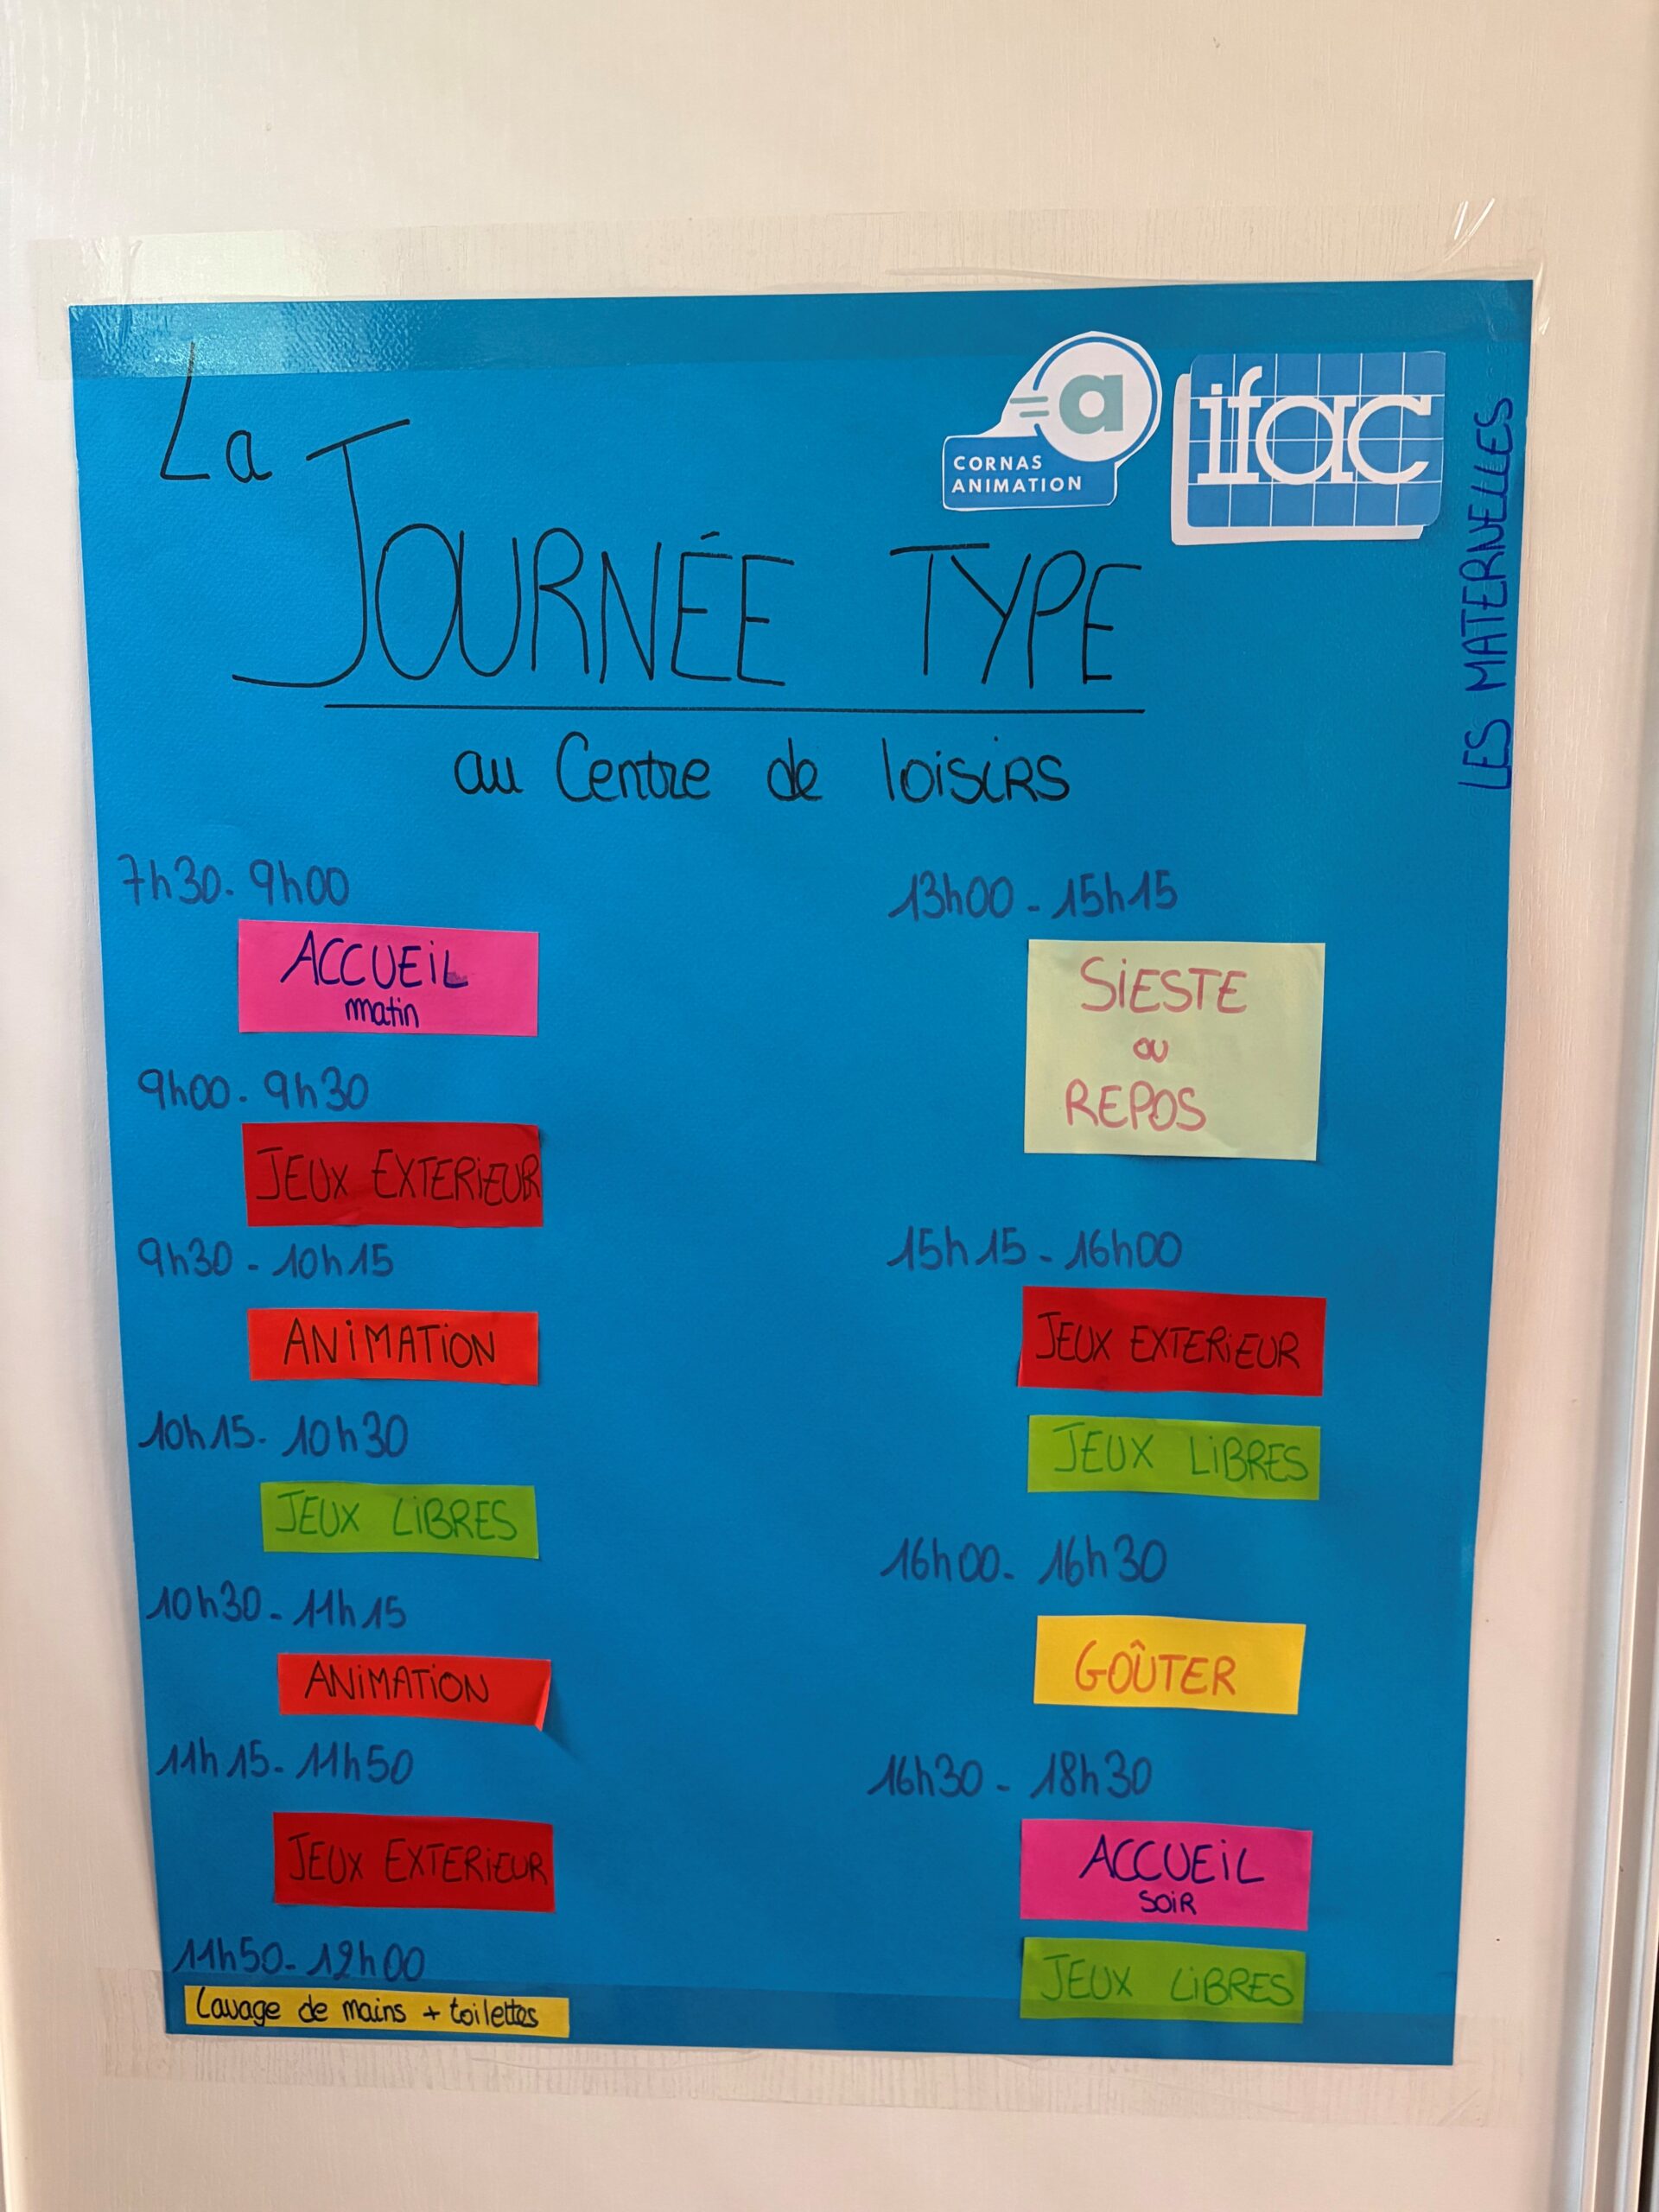 La
JOURNÉE TYPE
au Centre de loisirs
CORNAS
ANIMATION
ifac
LES MATERNELLES
7h30 - 9h00
ACCUEIL
matin
9h00 - 9h30
JEUX EXTERIEUR
9h30 - 10h15
ANIMATION
10h15 - 10h30
JEUX LIBRES
10h30 - 11h15
ANIMATION
11h15 - 11h50
JEUX EXTERIEUR
11h50 - 12h00
Lavage de mains + toilettes
13h00 - 15h15
SIESTE
ou
REPOS
15h15 - 16h00
JEUX EXTERIEUR
JEUX LIBRES
16h00 - 16h30
GOÛTER
16h30 - 18h30
ACCUEIL
SOIR
JEUX LIBRES